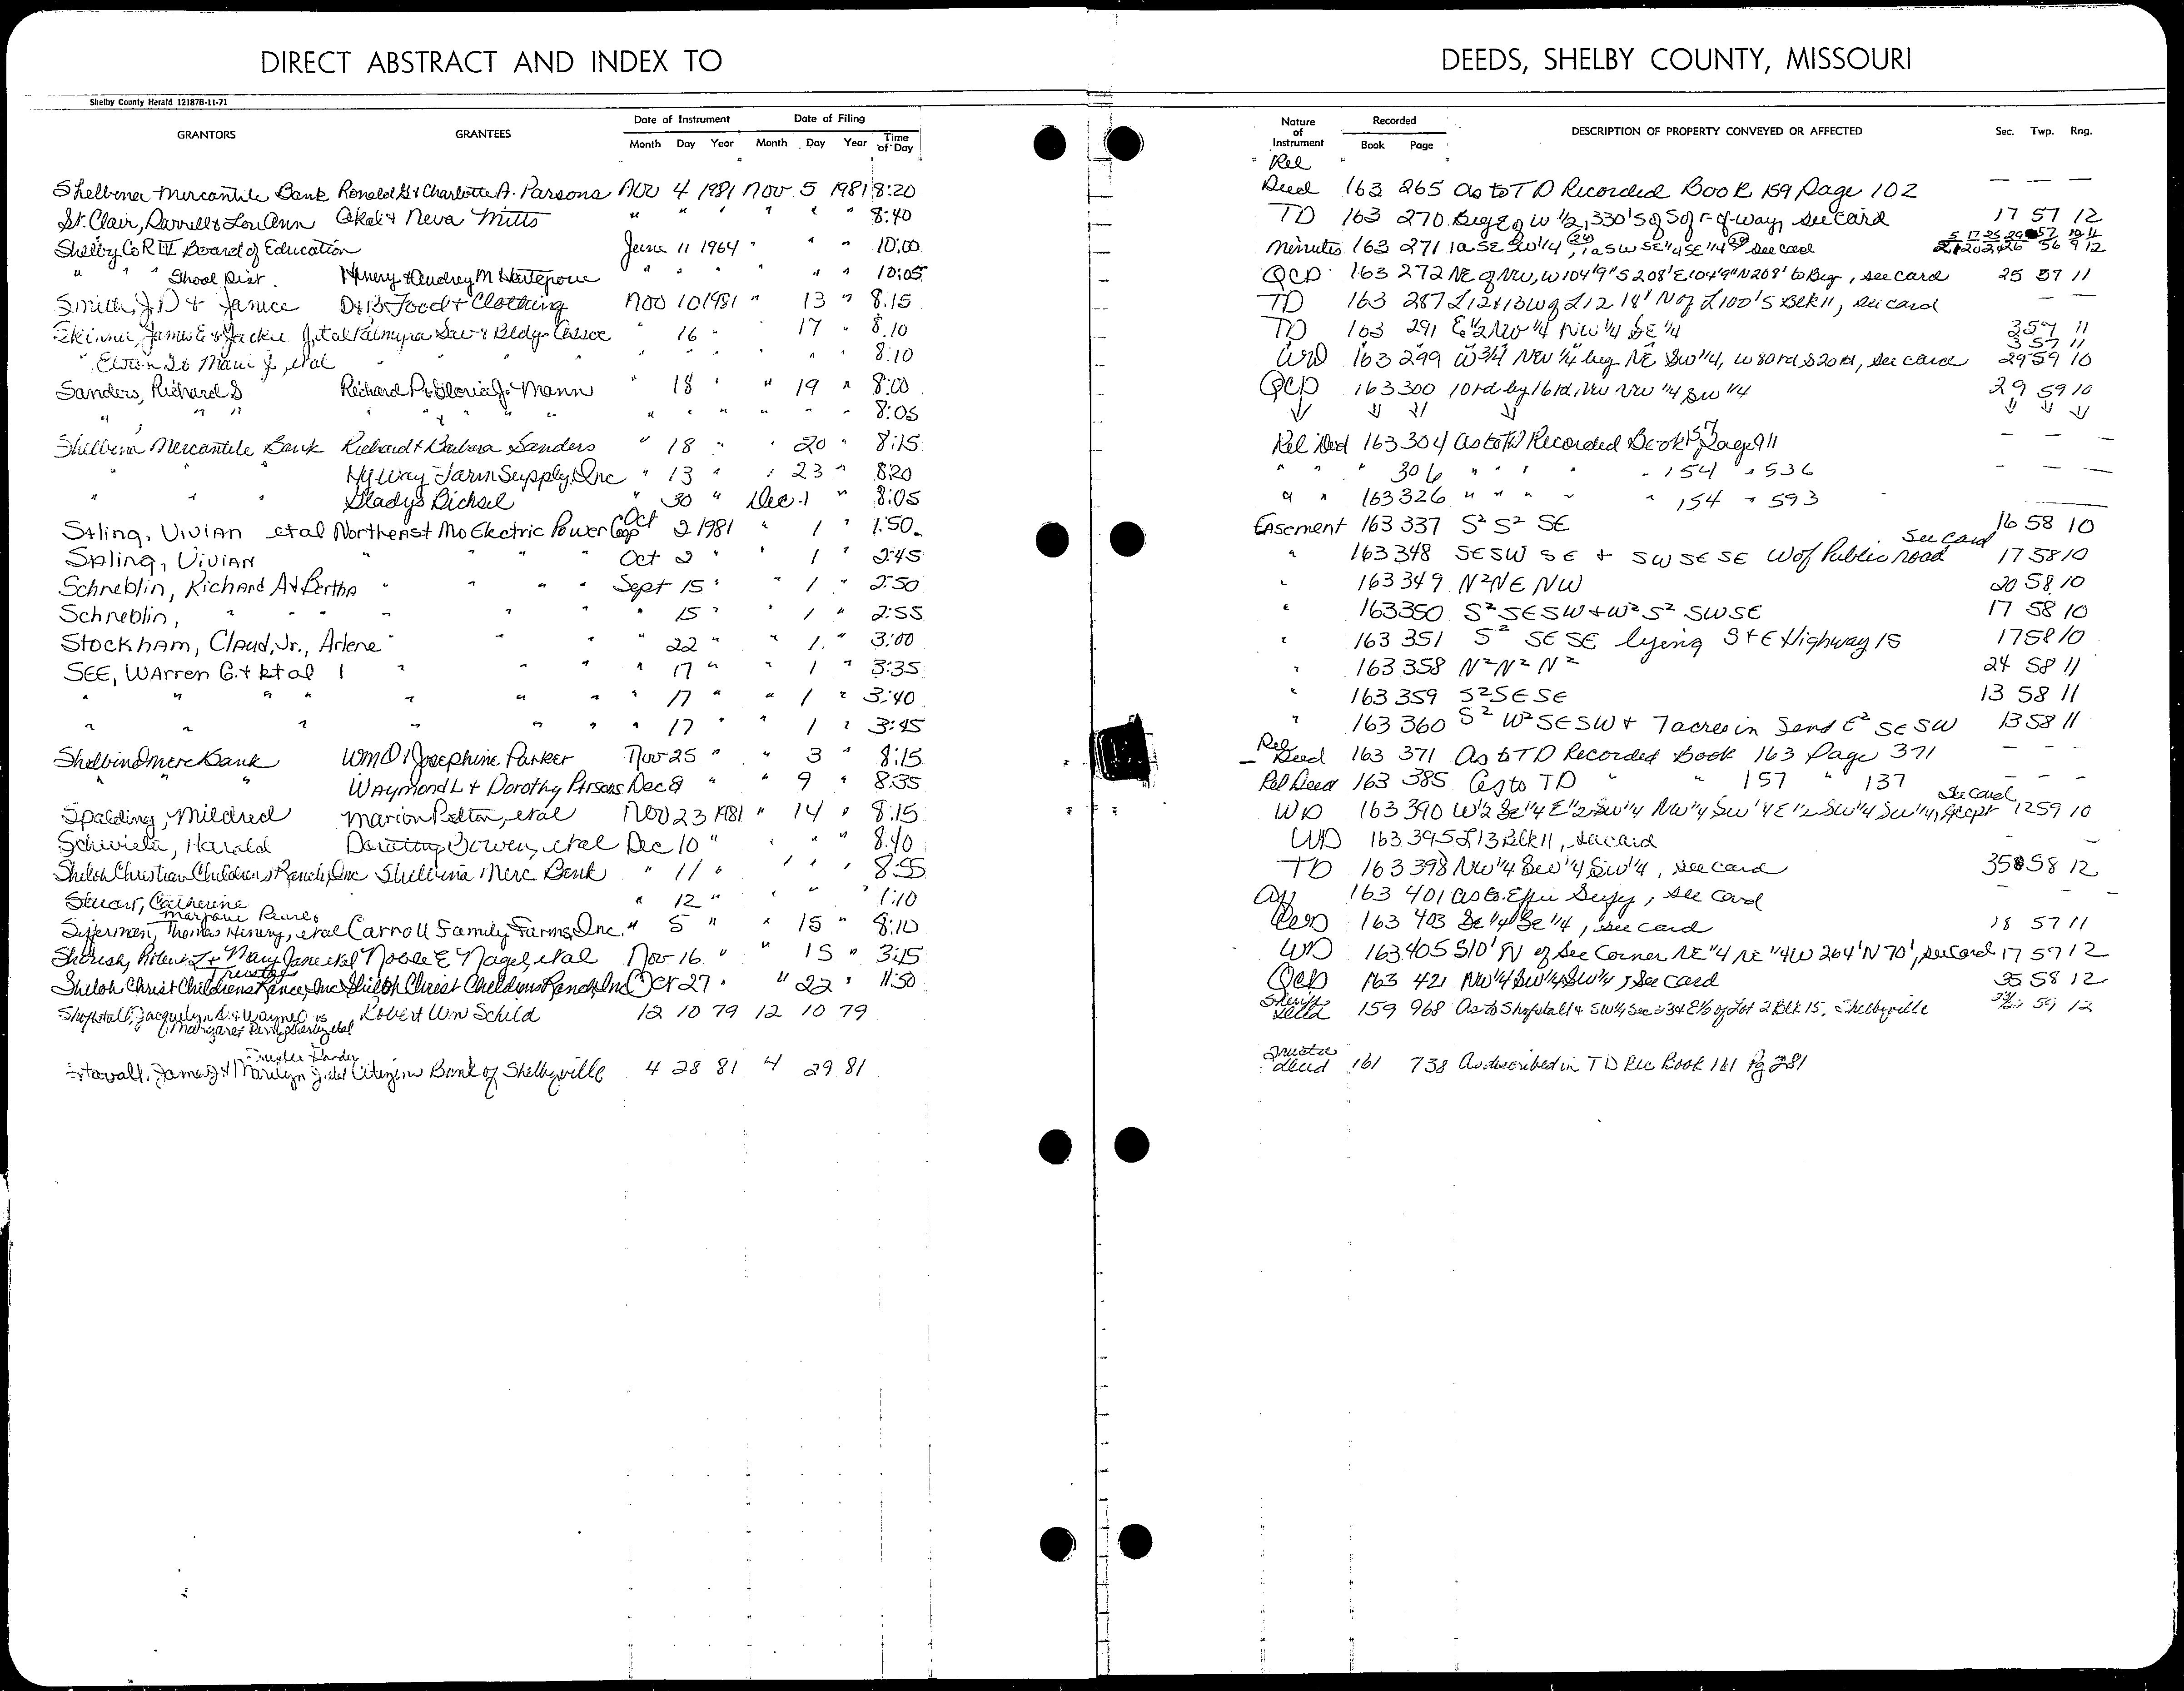 DIRECT ABSTRACT AND INDEX TO
DEEDS, SHELBY COUNTY, MISSOURI
Shelby County Herald 12187B-11-71
GRANTORS GRANTEES Date of Instrument Date of Filing
Month Day Year Month Day Year Time of Day
Nature of Instrument Recorded Book Page DESCRIPTION OF PROPERTY CONVEYED OR AFFECTED Sec. Twp. Rng.
Rel
Shelbina Mercantile Bank Ronald G & Charlotte A. Parsons Nov 4 1981 Nov 5 1981 8:20 Deed 163 265 As to TD Recorded Book 159 Page 102 — — —
St. Clair, Darrell & Lou Ann & Neva Mitts " " " " " " 8:40 TD 163 270 Beg E of W 1/2, 330's of S of r-of-way, see card 17 57 12
Shelby Co R IV Board of Education June 11 1964 " " " 10:00 Minutes 163 271 1a SE SW 1/4 , 1a SW SE 1/4 SE 1/4 see card
" " " Shool Dist. Henry & Audrey M " " " " " " 10:05 QCD 163 272 NE of NW, W 104'9" S 208' E 104'9" N 208' to Beg, see card 25 57 11
Smith, J D & Janice D & B Food & Clothing Nov 10 1981 " 13 " 8:15 TD 163 287 L12 & 13 W of L12 18' N of L100's Blk 11, see card — —
Skinner, James E & Jackie J, etal Palmyra Sav & Bldg Assoc 16 " 17 " 8:10 TD 163 291 E 1/2 NW 1/4 NW 1/4 SE 1/4 3 57 11
" 8:10 3 57 11
WD 163 299 W 3/4 NW 1/4 beg NE SW 1/4, W 80 rd S 20 rd, see card 29 59 10
Sanders, Richard S Richard P & Gloria J Mann " 18 " " 19 " 8:00 QCD 163 300 10 rd by 16 rd, NW NW 1/4 SW 1/4 29 59 10
" " " " " " " " " " " " " 8:05
Shelbina Mercantile Bank Richard & Barbara Sanders " 18 " " 20 " 8:15 Rel Deed 163 304 As to TD Recorded Book 157 Page 911 — — —
" " " Hy Way Farm Supply, Inc " 13 " " 23 " 8:20 " " " 306 " " " " " 154 " 536 — — —
" " " Gladys Bichsel " 30 " Dec 1 " 8:05 " " 163 326 " " " " " 154 " 593
Spling, Vivian etal Northeast Mo Electric Power Coop Oct 2 1981 " 1 " 1:50 Easement 163 337 S² S² SE 16 58 10
Spling, Vivian " " " Oct 2 " " 1 " 2:45 " 163 348 SE SW SE & SW SE SE W of Public road See card 17 58 10
Schneblin, Richard A & Bertha " " " " Sept 15 " " 1 " 2:50 " 163 349 N² NE NW 20 58 10
Schneblin, " " " " " " " 15 " " 1 " 2:55 " 163 350 S² SE SW & W² S² SW SE 17 58 10
Stockham, Claud, Jr., Arlene " " " " " 22 " " 1 " 3:00 " 163 351 S² SE SE lying S & E Highway 15 17 58 10
SEE, Warren G. & et al " " " " " 17 " " 1 " 3:35 " 163 358 N² N² N² 24 58 11
" " " " " " " " 17 " " 1 " 3:40 " 163 359 S² SE SE 13 58 11
" " " " " " " 17 " " 1 " 3:45 " 163 360 S² W² SE SW & 7 acres in S end E² SE SW 13 58 11
Shelbina Merc Bank Wm O & Josephine Parker Nov 25 " " 3 " 8:15 Rel Deed 163 371 As to TD Recorded Book 163 Page 371 — — —
" " " Waymond L & Dorothy Parsons Dec 8 " " 9 " 8:35 Rel Deed 163 385 As to TD " " 157 " 137 — — —
Spalding, Mildred Marion Pelton, etal Nov 23 1981 " 14 " 8:15 WD 163 390 W 1/2 SE 1/4 E 1/2 SW 1/4 NW 1/4 SW 1/4 E 1/2 SW 1/4 SW 1/4, except See card 12 59 10
Harold Dorothy Bowen, etal Dec 10 " " " " 8:40 WD 163 395 L13 Blk 11, see card —
Shiloh Christian Childrens Ranch, Inc Shelbina Merc Bank " 11 " " " " 8:55 TD 163 398 NW 1/4 SW 1/4 SW 1/4, see card 35 58 12
Stuart, Catherine " 12 " " " " 1:10 Aff 163 401 As to Effie , see card — — —
Thomas Henry, etal Carroll Family Farms, Inc. " 5 " " 15 " 8:10 163 403 SE 1/4 SE 1/4, see card 18 57 11
& Mary Jane etal Noble E Nagel, etal Nov. 16 " " 15 " 3:15 WD 163 405 510' N of Sec Corner NE 1/4 NE 1/4 W 264' N 70', see card 17 57 12
Trustees
Shiloh Christ Childrens Rance, Inc Shiloh Christ Childrens Ranch, Inc Oct 27 " " 22 " 11:50 QCD 163 421 NW 1/4 SW 1/4 SW 1/4, see card 35 58 12
Shofstall, Jacquelyn & Wayne vs Robert Wm Schild 12 10 79 12 10 79 Sheriffs Deed 159 968 As to Shofstall & SW 1/4 Sec 34 E 1/2 of Lot 2 Blk 15, Shelbyville 59 12
Stovall, James J & Marilyn J etal Citizens Bank of Shelbyville 4 28 81 4 29 81 Trustee deed 161 738 As described in TD Rec Book 161 Pg 281